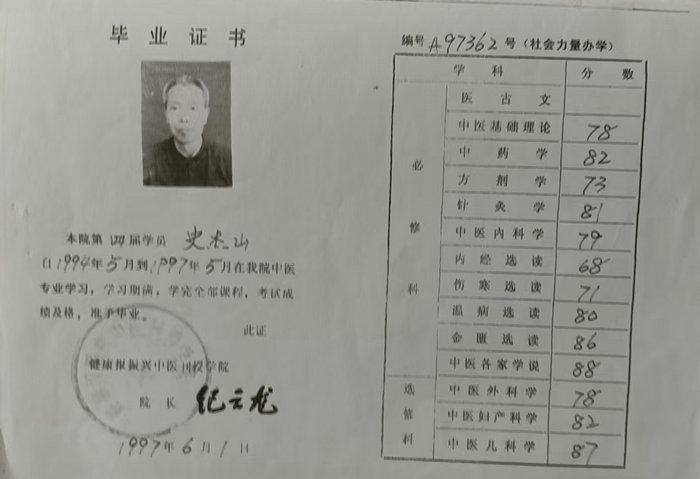 毕业证书
本院第四届学员 史杰山
自1994年5月到1997年5月在我院中医
专业学习，学习期满，学完全部课程，考试成
绩及格，准予毕业。
此证
健康报振兴中医刊授学院
院长 纪云龙
1997年6月1日
编号A97362号（社会力量办学）
学科 分数
必修科
医古文
中医基础理论 78
中药学 82
方剂学 73
针灸学 81
中医内科学 79
内经选读 68
伤寒选读 71
温病选读 80
金匮选读 86
中医各家学说 88
选修科
中医外科学 78
中医妇产科学 82
中医儿科学 87